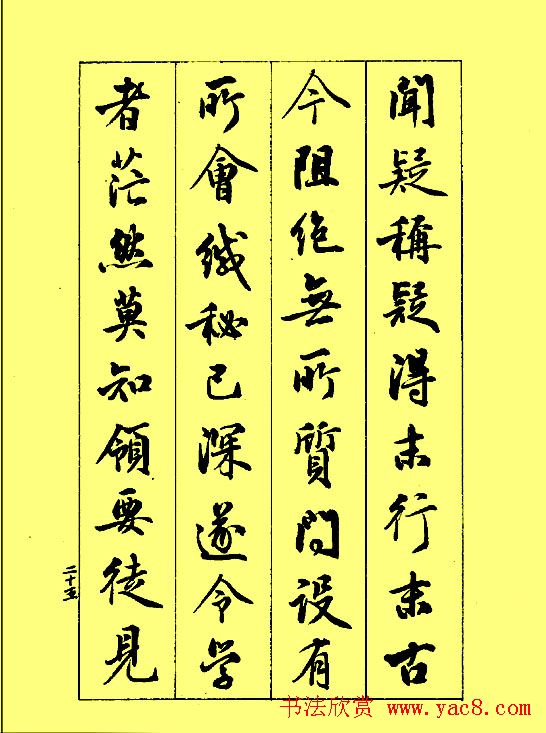 聞疑稱疑得末行末古
今阻絶無所質問設有
所會緘秘已深遂令学
者茫然莫知領要徒見
二十五
书法欣赏 www.yac8.com